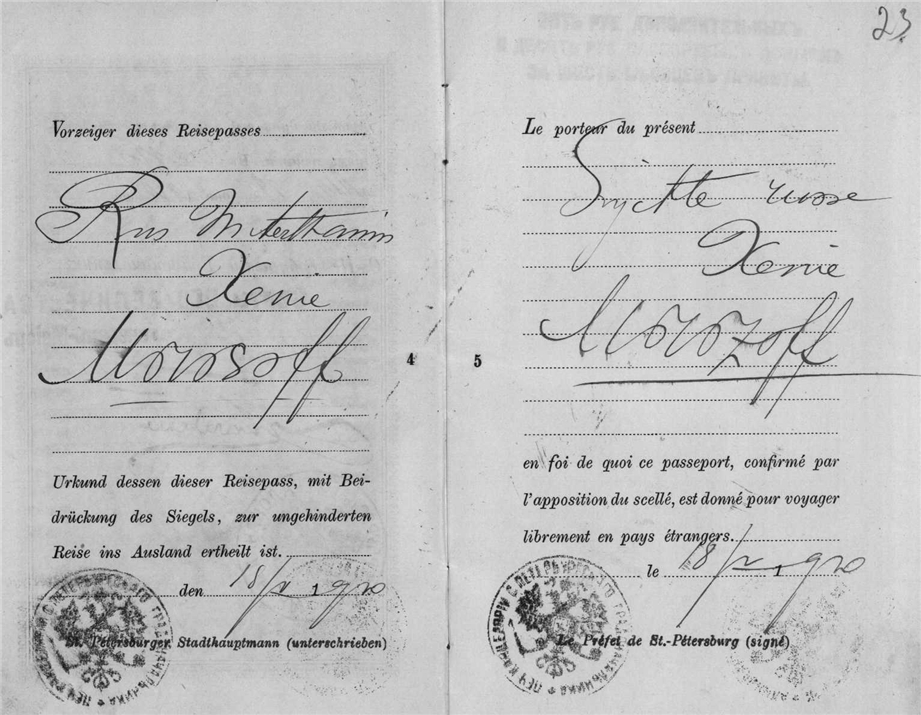 23.
Vorzeiger dieses Reisepasses
Rus
Xenie
Morosoff
4
Urkund dessen dieser Reisepass, mit Bei-
drückung des Siegels, zur ungehinderten
Reise ins Ausland ertheilt ist.
den 18/V 1910
St. Petersburger Stadthauptmann (unterschrieben)
Le porteur du présent
Sujette russe
Xenie
Morozoff
5
en foi de quoi ce passeport, confirmé par
l'apposition du scellé, est donné pour voyager
librement en pays étrangers.
le 18/V 1910
Le Préfet de St.-Pétersburg (signé)